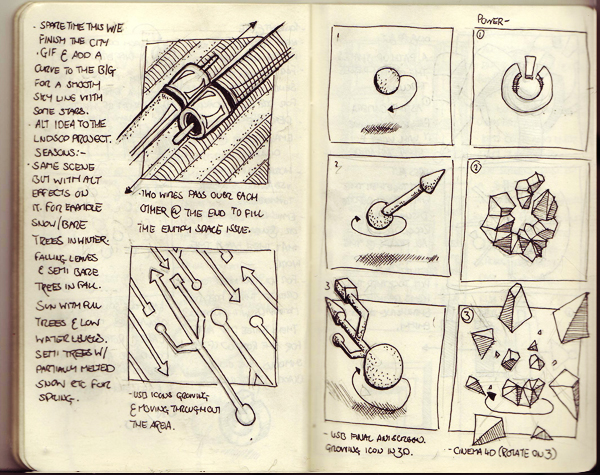 · SPARE TIME THIS W/E
FINISH THE CITY
.GIF & ADD A
CURVE TO THE B/G
FOR A SMOOTH
SKY LINE WITH
SOME STARS.
· ALT IDEA TO THE
LNDSCP PROJECT.
SEASONS:-
· SAME SCENE
BUT WITH ALT
EFFECTS ON
IT. FOR EXAMPLE
SNOW/BARE
TREES IN WINTER.
FALLING LEAVES
& SEMI BARE
TREES IN FALL.
SUN WITH FULL
TREES & LOW
WATER LEVELS.
SEMI TREES W/
PARTIALLY MELTED
SNOW ETC FOR
SPRING.
· TWO WIRES PASS OVER EACH
OTHER @ THE END TO FILL
THE EMPTY SPACE ISSUE.
- USB ICONS GROWING
& MOVING THROUGHOUT
THE AREA.
POWER-
1
1
2
2
3
3
- USB FINAL ANISCREEN.
GROWING ICON IN 3D.
- CINEMA 4D (ROTATE ON 3)